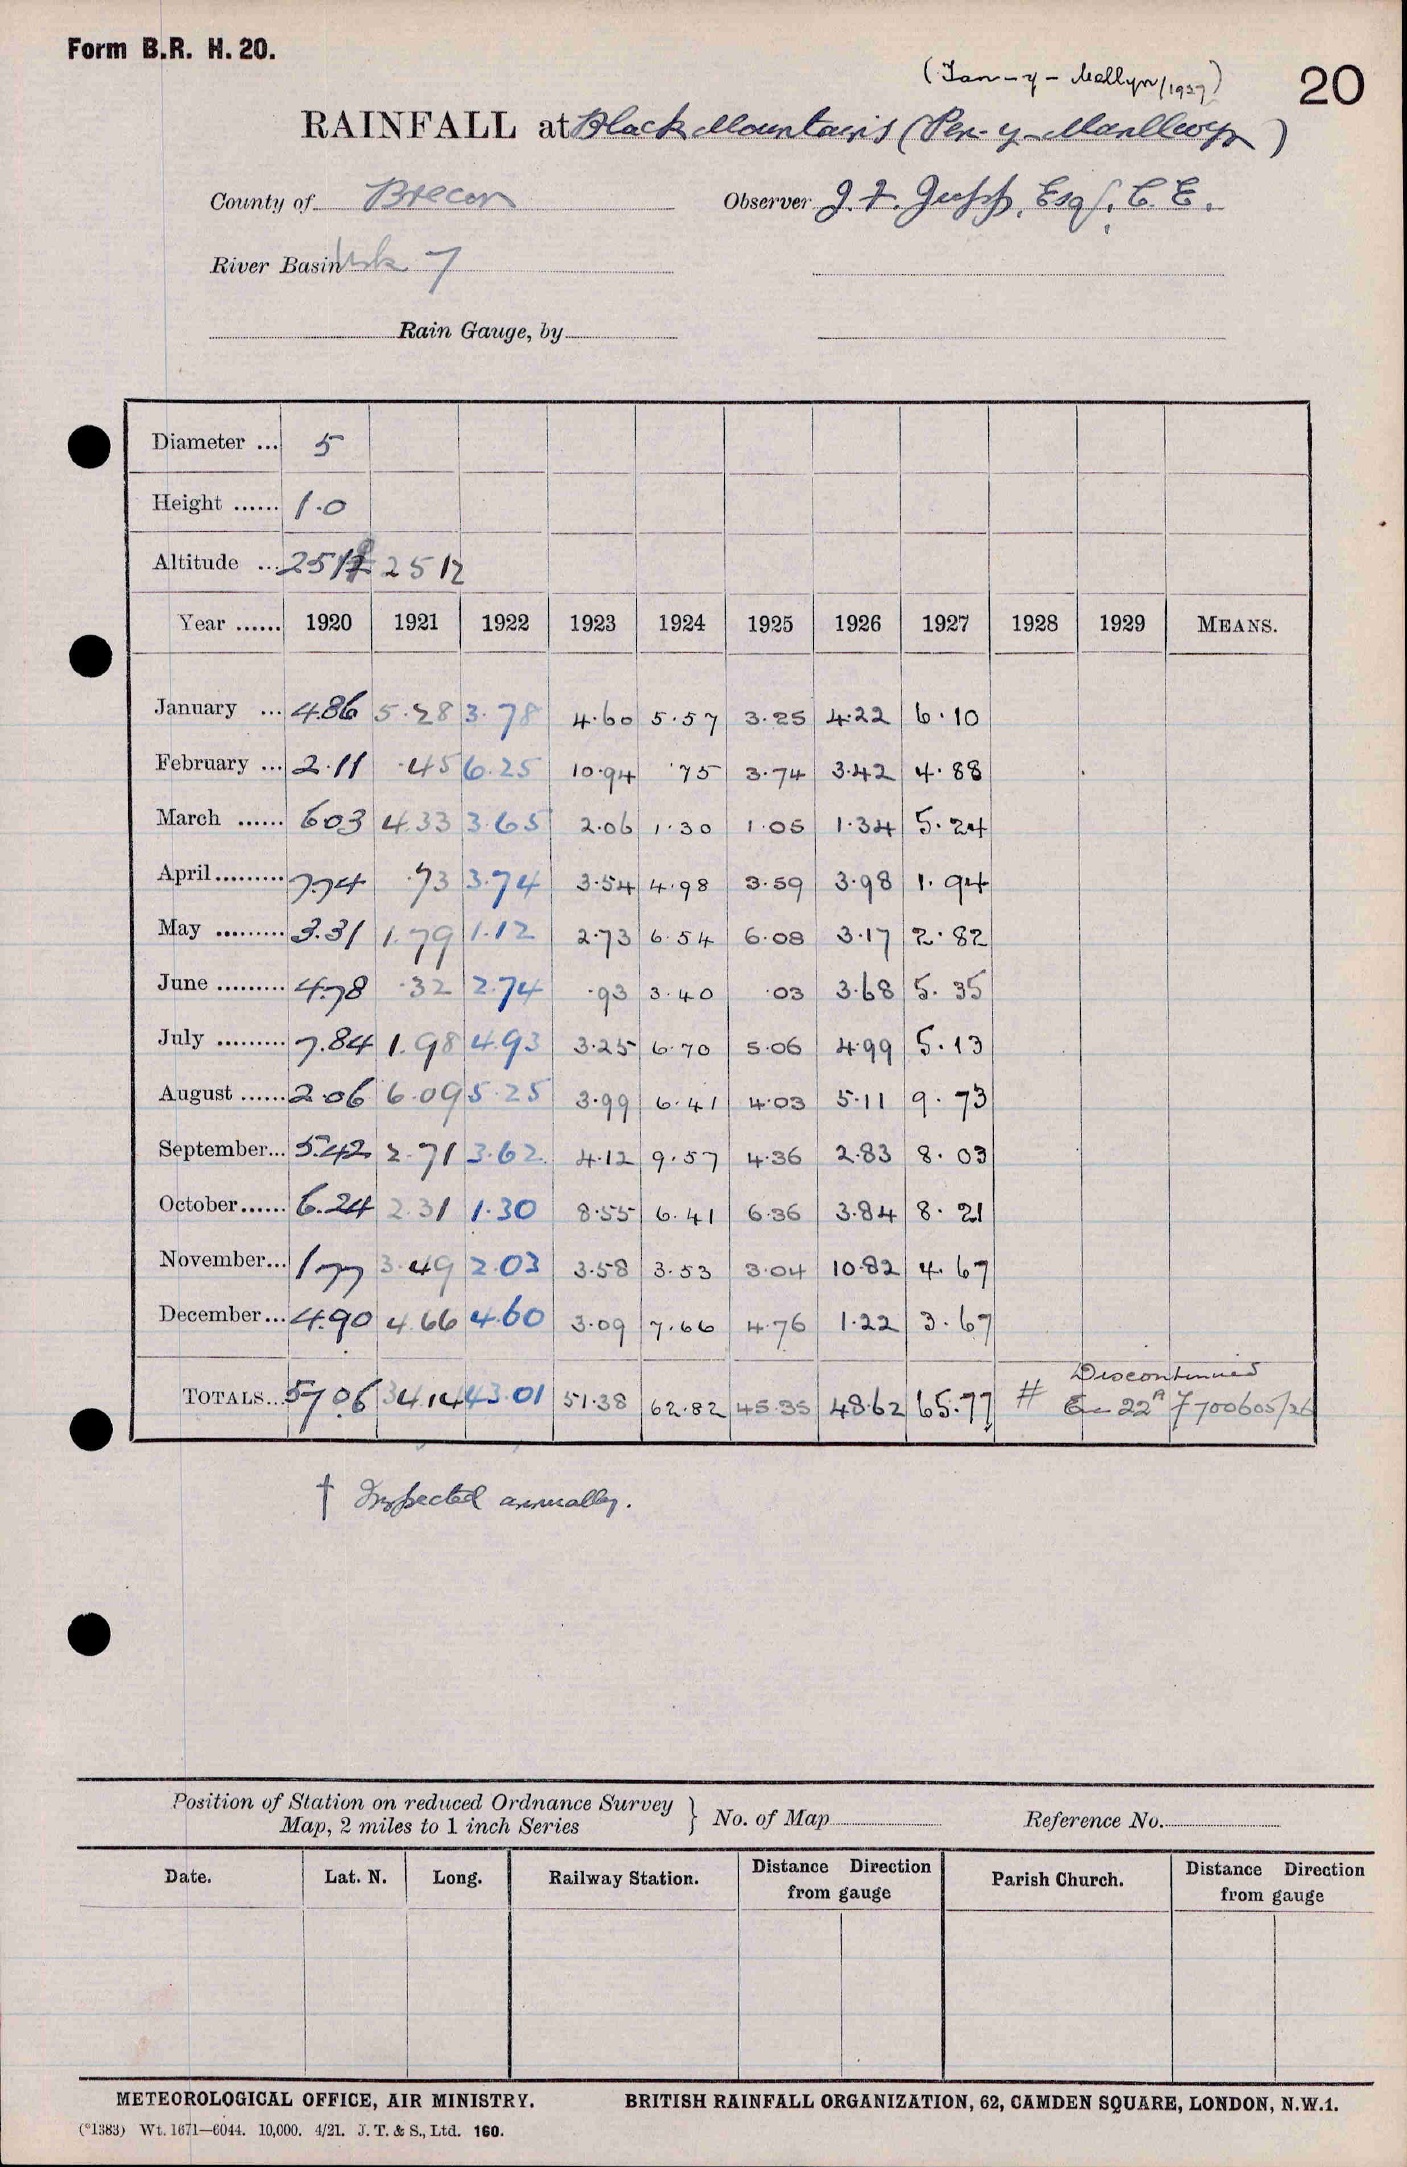 Form B.R. H. 20.
20
(Tan-y-Mallyn/1927)
RAINFALL at Black Mountains (Pen-y-Manllwyn)
County of Brecon Observer J. F. Jupp, Esq., C. E.
River Basin Usk 7
Rain Gauge, by
Diameter ... 5
Height ...... 1.0
Altitude ... 2512 2512
Year ...... 1920 1921 1922 1923 1924 1925 1926 1927 1928 1929 MEANS.
January ... 4.86 5.28 3.78 4.60 5.57 3.25 4.22 6.10
February ... 2.11 .45 6.25 10.94 .75 3.74 3.42 4.88
March ...... 6.03 4.33 3.65 2.06 1.30 1.05 1.34 5.24
April ......... 7.74 .73 3.74 3.54 4.98 3.59 3.98 1.94
May ......... 3.31 1.79 1.12 2.73 6.54 6.08 3.17 2.82
June ......... 4.78 .32 2.74 .93 3.40 .03 3.68 5.35
July ......... 7.84 1.98 4.93 3.25 6.70 5.06 4.99 5.13
August ...... 2.06 6.09 5.25 3.99 6.41 4.03 5.11 9.73
September... 5.42 2.71 3.62 4.12 9.57 4.36 2.83 8.03
October...... 6.24 2.31 1.30 8.55 6.41 6.36 3.84 8.21
November... 1.77 3.49 2.03 3.58 3.53 3.04 10.82 4.67
December... 4.90 4.66 4.60 3.09 7.66 4.76 1.22 3.67
Discontinued
TOTALS... 57.06 34.14 43.01 51.38 62.82 45.35 48.62 65.77 # 22A 7700605/26
† Inspected annually.
Position of Station on reduced Ordnance Survey
Map, 2 miles to 1 inch Series } No. of Map Reference No.
Date. Lat. N. Long. Railway Station. Distance Direction from gauge Parish Church. Distance Direction from gauge
METEOROLOGICAL OFFICE, AIR MINISTRY. BRITISH RAINFALL ORGANIZATION, 62, CAMDEN SQUARE, LONDON, N.W.1.
(*1383) Wt. 1671—6044. 10,000. 4/21. J. T. & S., Ltd. 160.